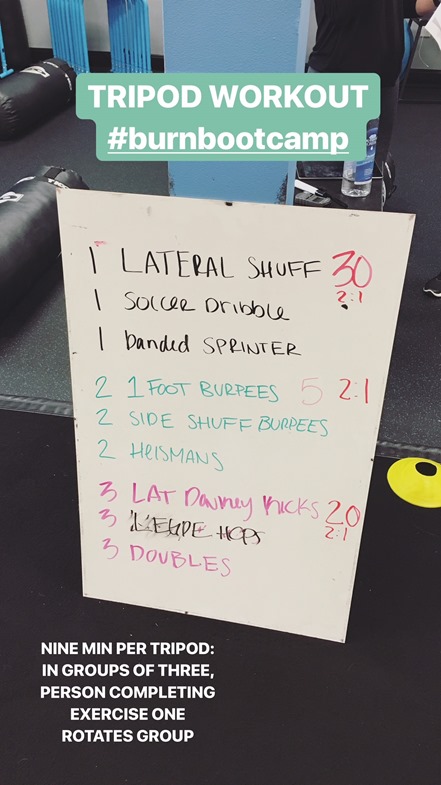 TRIPOD WORKOUT
#burnbootcamp
1 LATERAL SHUFF 30
2:1
1 SOCCER Dribble
1 banded SPRINTER
2 1 FOOT BURPEES 5 2:1
2 SIDE SHUFF BURPEES
2 HEISMANS
3 LAT Donney KICKS 20
2:1
3 HOPS
3 DOUBLES
NINE MIN PER TRIPOD:
IN GROUPS OF THREE,
PERSON COMPLETING
EXERCISE ONE
ROTATES GROUP